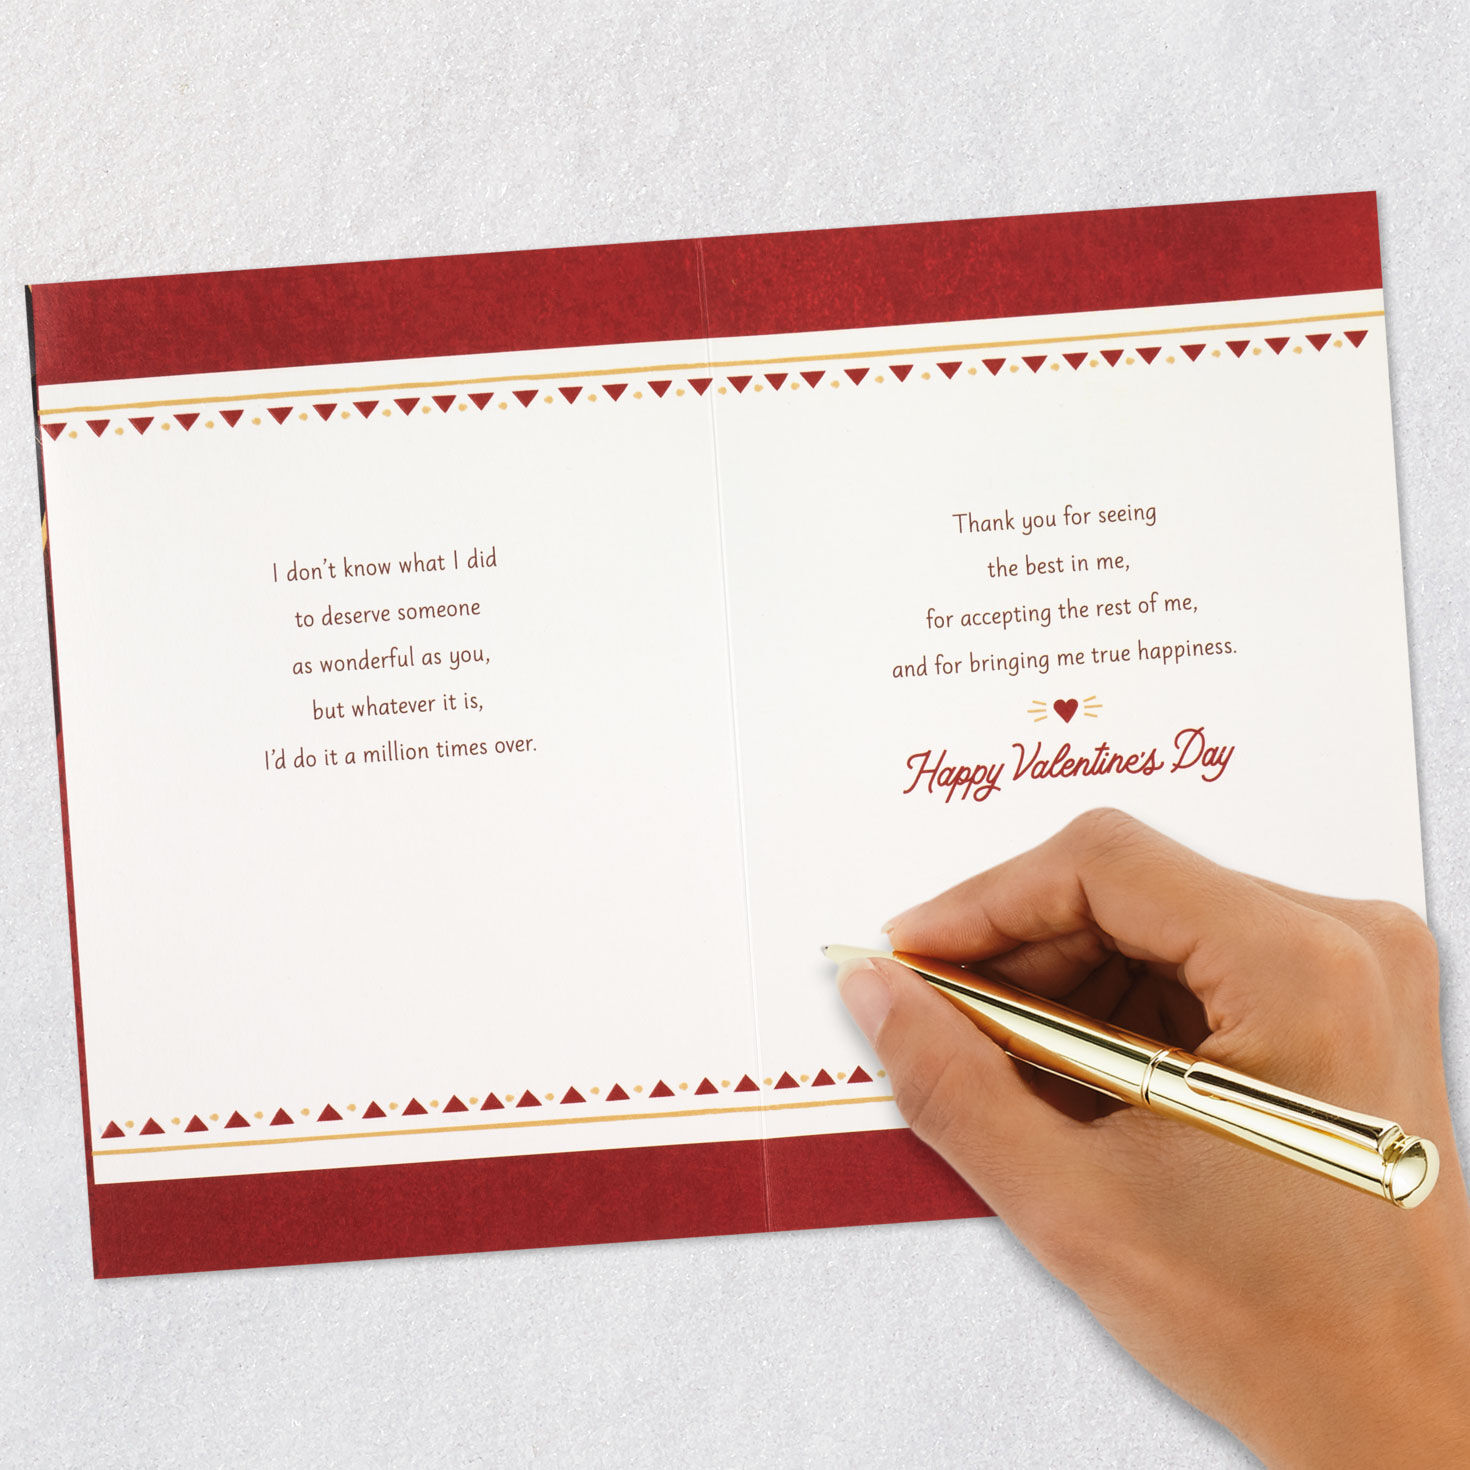 I don't know what I did
to deserve someone
as wonderful as you,
but whatever it is,
I'd do it a million times over.
Thank you for seeing
the best in me,
for accepting the rest of me,
and for bringing me true happiness.
Happy Valentine's Day